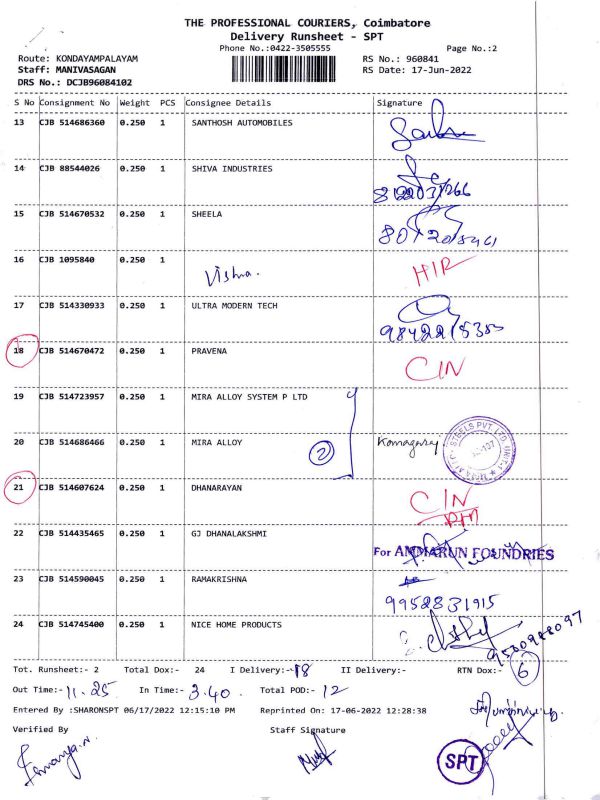 THE PROFESSIONAL COURIERS, Coimbatore
Delivery Runsheet - SPT
Phone No.:0422-3505555 Page No.:2
Route: KONDAYAMPALAYAM RS No.: 960841
Staff: MANIVASAGAN RS Date: 17-Jun-2022
DRS No.: DCJB96084102
S No Consignment No Weight PCS Consignee Details Signature
13 CJB 514686360 0.250 1 SANTHOSH AUTOMOBILES
14 CJB 88544026 0.250 1 SHIVA INDUSTRIES
15 CJB 514670532 0.250 1 SHEELA
16 CJB 1095840 0.250 1 HIR
17 CJB 514330933 0.250 1 ULTRA MODERN TECH
18 CJB 514670472 0.250 1 PRAVENA CIN
19 CJB 514723957 0.250 1 MIRA ALLOY SYSTEM P LTD
20 CJB 514686466 0.250 1 MIRA ALLOY 2
21 CJB 514607624 0.250 1 DHANARAYAN CIN
22 CJB 514435465 0.250 1 GJ DHANALAKSHMI For AMMARUN FOUNDRIES
23 CJB 514590045 0.250 1 RAMAKRISHNA
9952831915
24 CJB 514745400 0.250 1 NICE HOME PRODUCTS
Tot. Runsheet:- 2 Total Dox:- 24 I Delivery:- 18 II Delivery:- RTN Dox:- 6
Out Time:- 11.25 In Time:- 3.40 Total POD:- 12
Entered By :SHARONSPT 06/17/2022 12:15:10 PM Reprinted On: 17-06-2022 12:28:38
Verified By Staff Signature
SPT